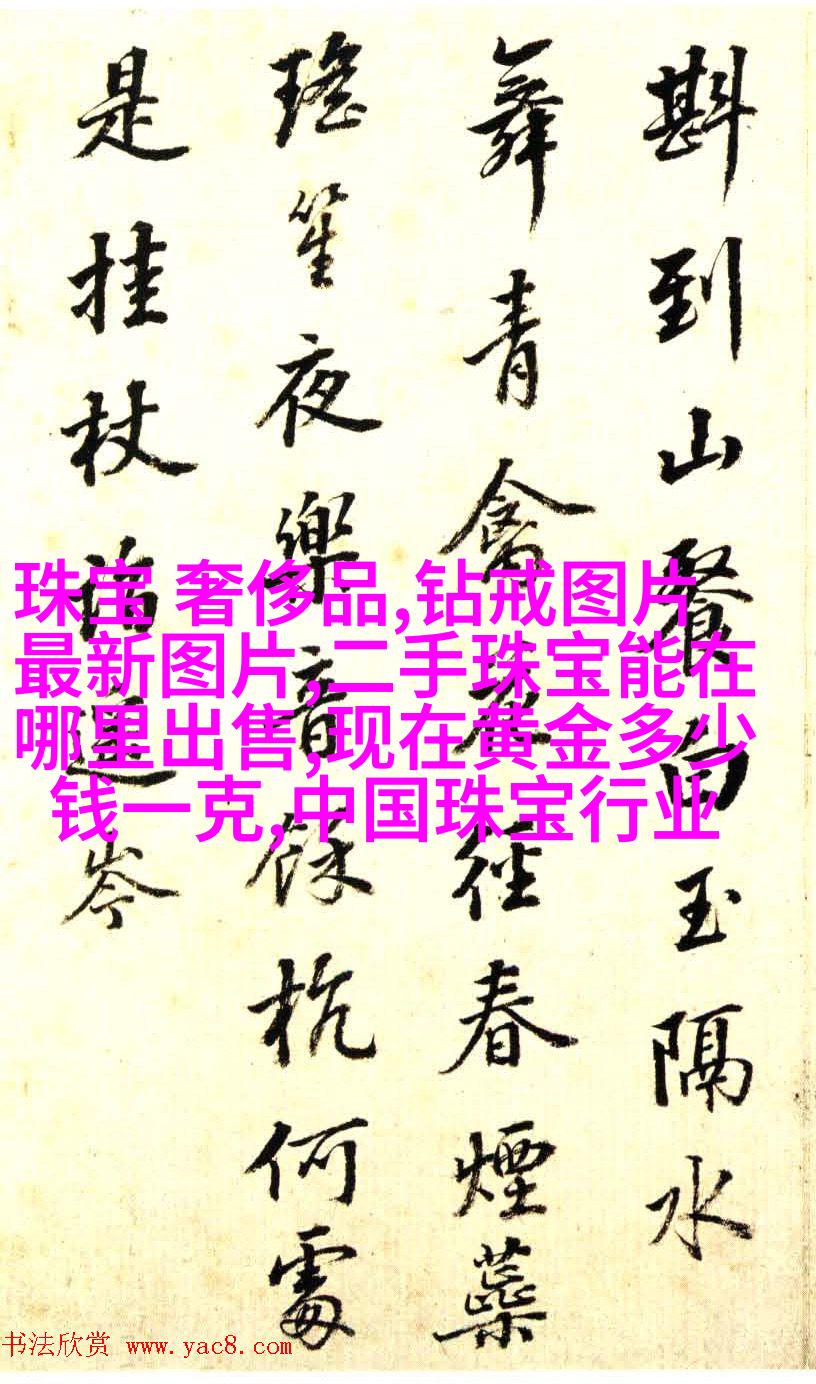 斟到山餐白玉隔水
舞青禽徑春煙蘂
瑤笙夜樂音餘杭何處
是挂杖岑
珠宝 奢侈品,钻戒图片
最新图片,二手珠宝能在
哪里出售,现在黄金多少
钱一克,中国珠宝行业
书法欣赏 www.yac8.com